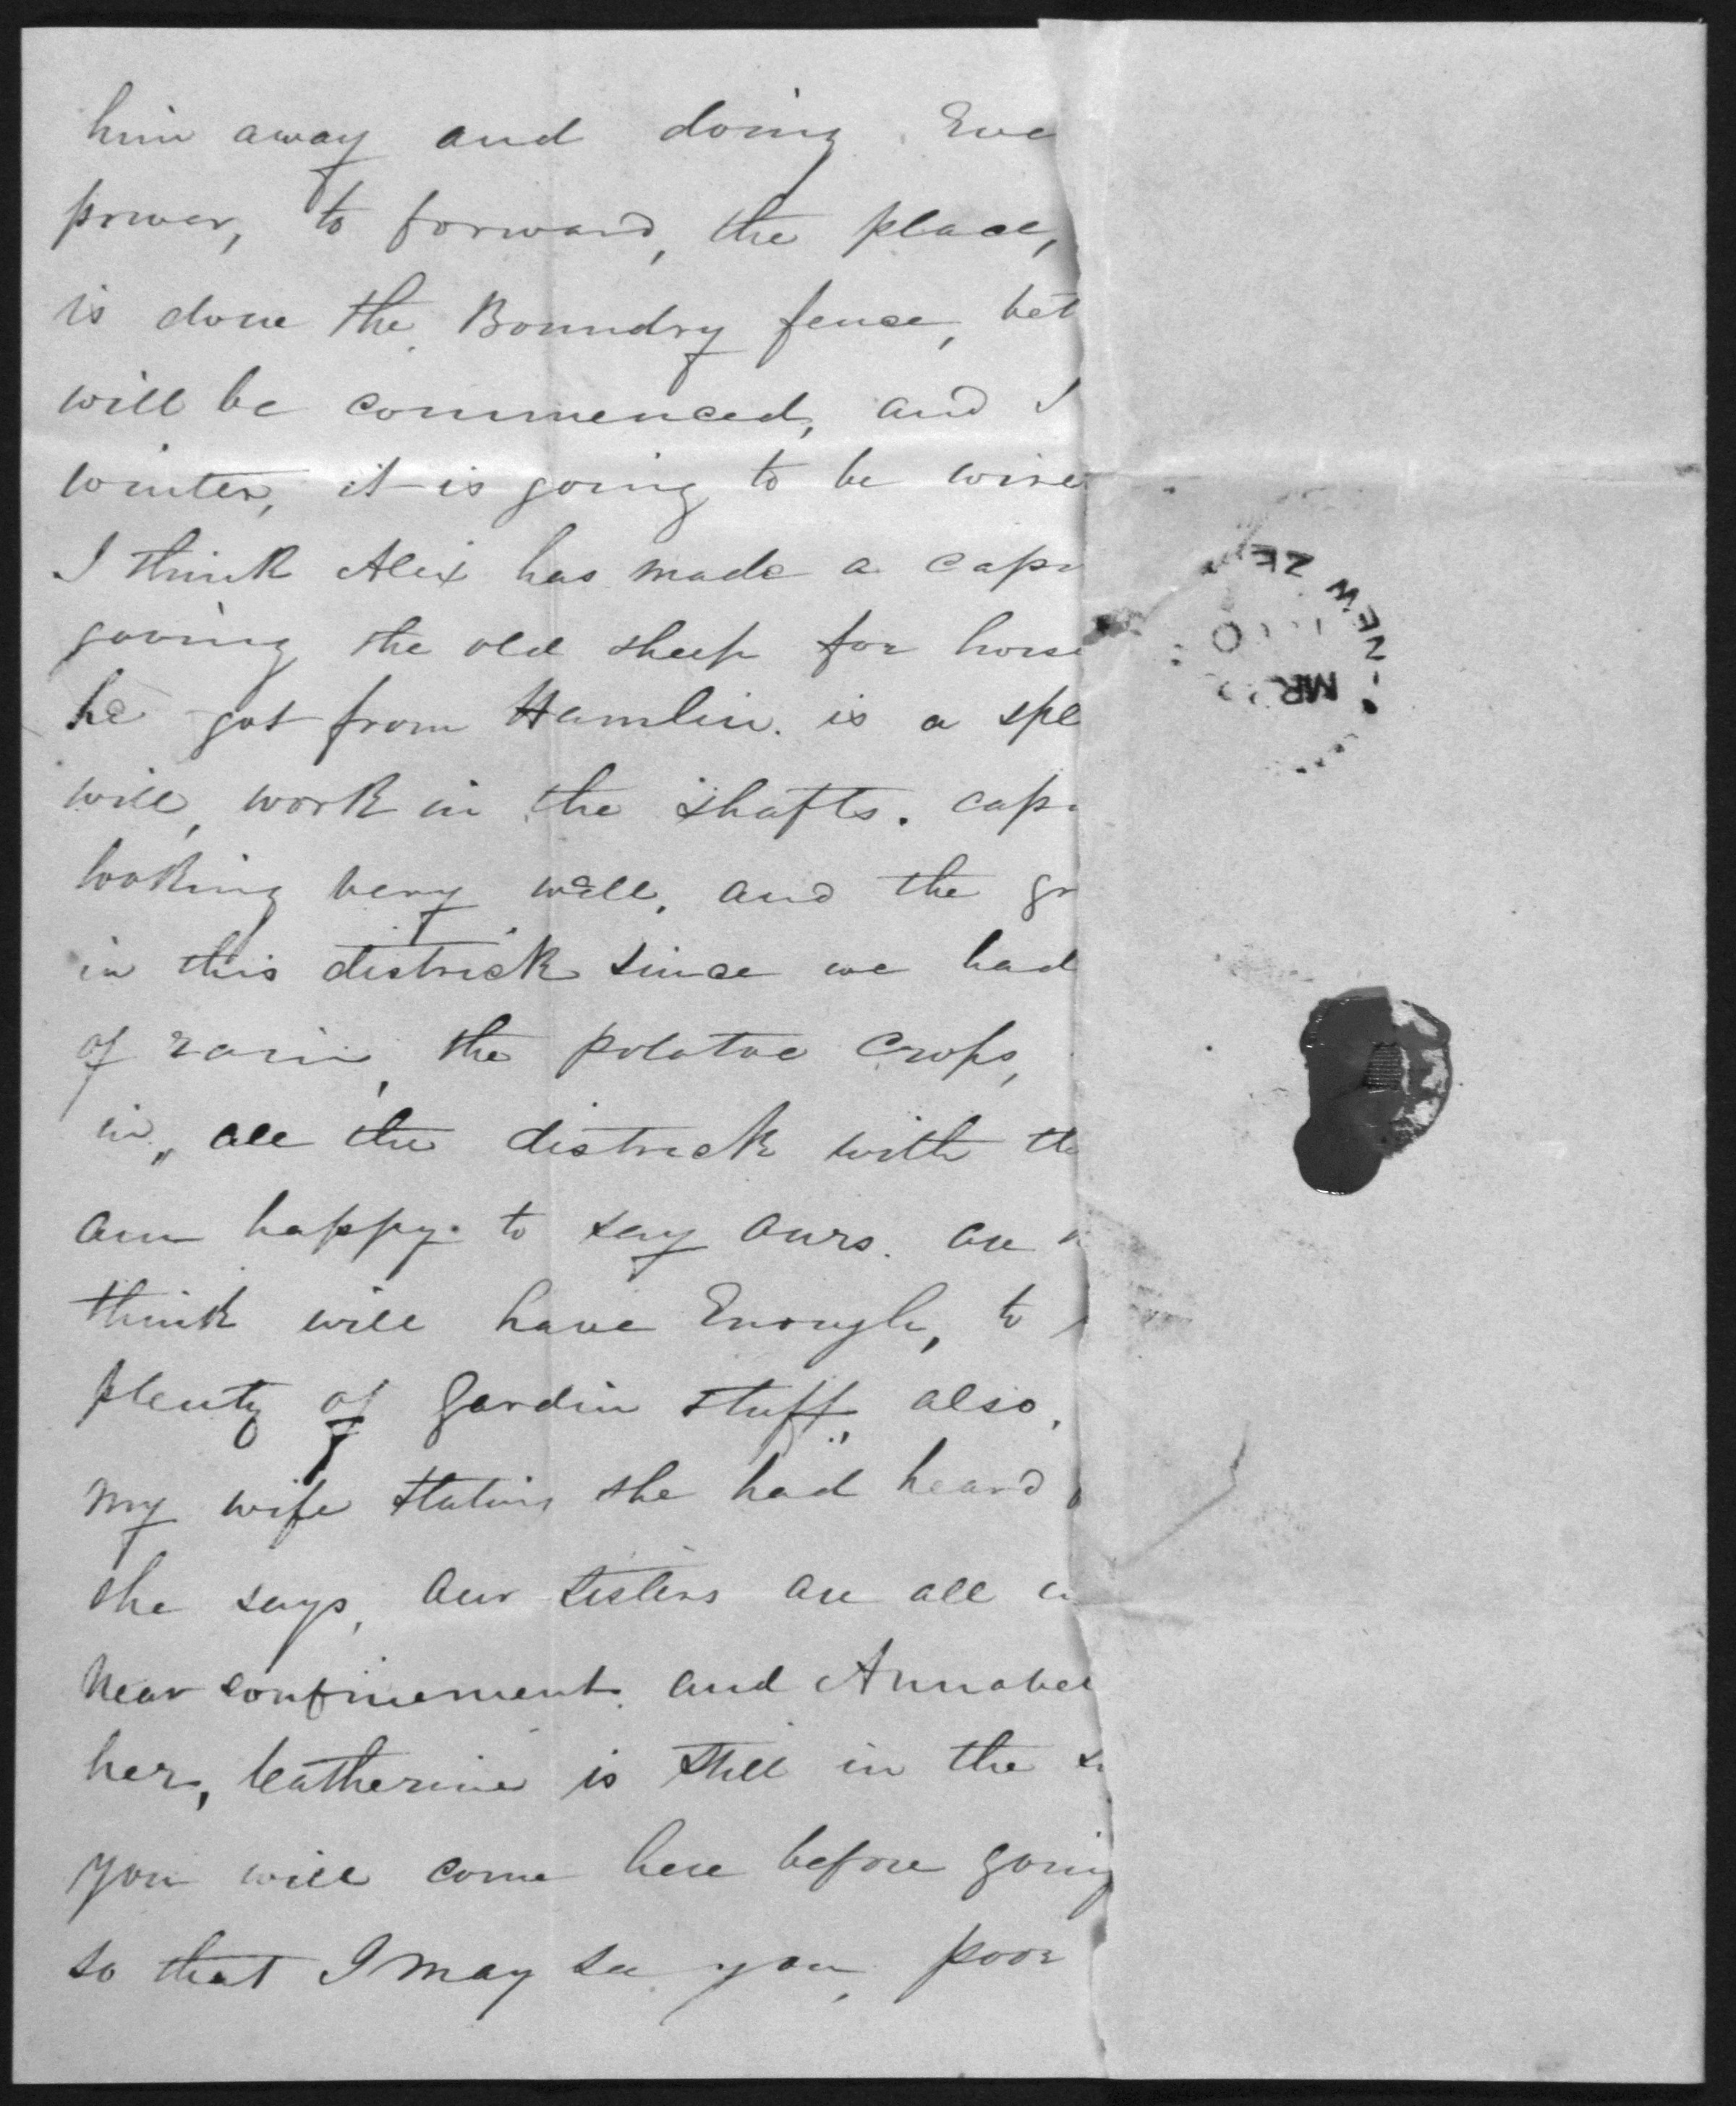 him away and doing Eve
power, to forward, the place,
is done the Boundry fence, bet
will be commenced, and I
winter, it is going to be wire
I think Alix has made a cap
giving the old sheep for hors
he got from Hamlin. is a spl
will, work in the shafts. cap
looking very well, and the gr
in this districk since we had
of rain, the potatoe crops,
in,, all the districk with th
am happy to say ours. are
think will have Enough, to
plenty of gardin stuff, also,
my wife stating she had heard
she says, our sisters are all
near confinement. and Annabel
her, Catherine is still in the
you will come here before going
so that I may see you, poor
NEW ZE
MR